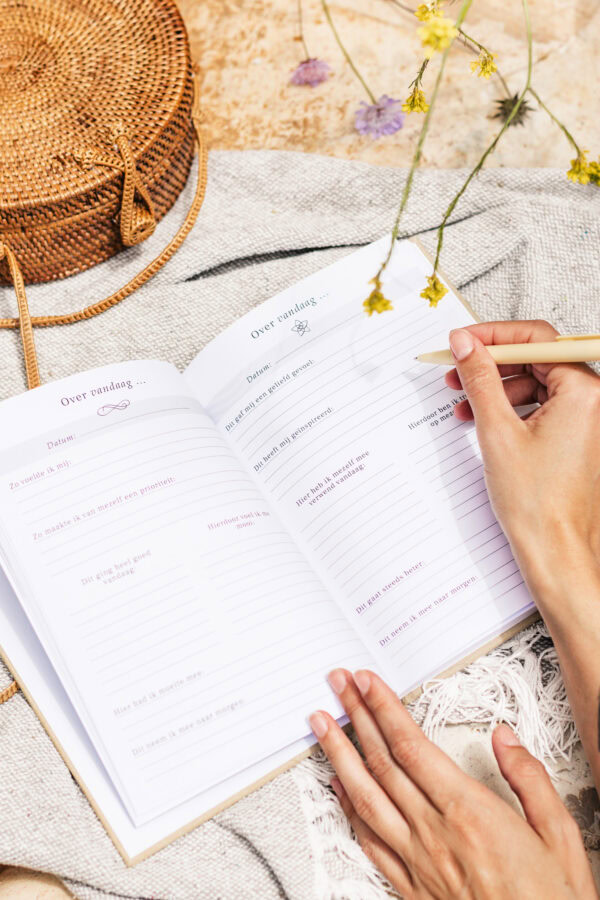 Over vandaag ...
Datum:
Zo voelde ik mij:
Zo maakte ik van mezelf een prioriteit:
Hierdoor voel ik me
mooi:
Dit ging heel goed
vandaag:
Hier had ik moeite mee:
Dit neem ik mee naar morgen:
Over vandaag ...
Datum:
Dit gaf mij een geliefd gevoel:
Dit heeft mij geïnspireerd:
Hierdoor ben ik
op me
Hier heb ik mezelf mee
verwend vandaag:
Dit gaat steeds beter:
Dit neem ik mee naar morgen: